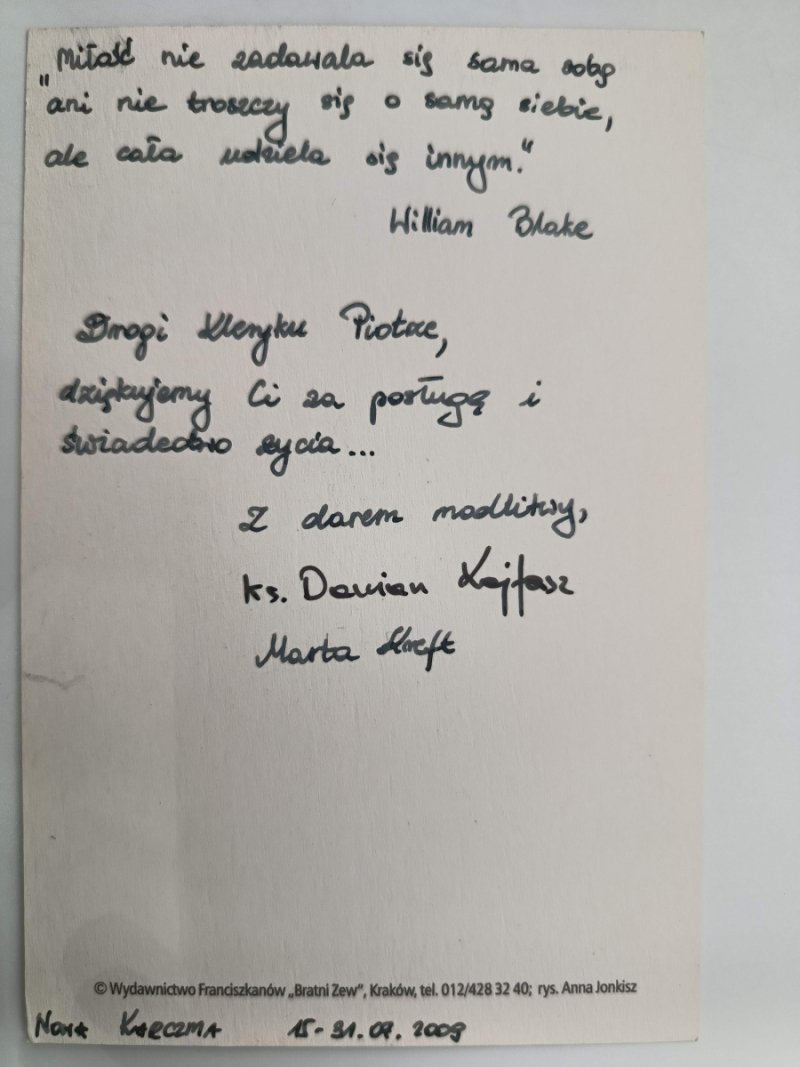 „Miłość nie zadawala się sama sobą
ani nie troszczy się o samą siebie,
ale cała udziela się innym."
William Blake
Drogi Kleryku Piotrze,
dziękujemy Ci za posługę i
świadectwo życia...
Z darem modlitwy,
ks. Damian Kajfasz
Marta Kreft
© Wydawnictwo Franciszkanów „Bratni Zew", Kraków, tel. 012/428 32 40; rys. Anna Jonkisz
NOWA KARCZMA 15-31.07.2009